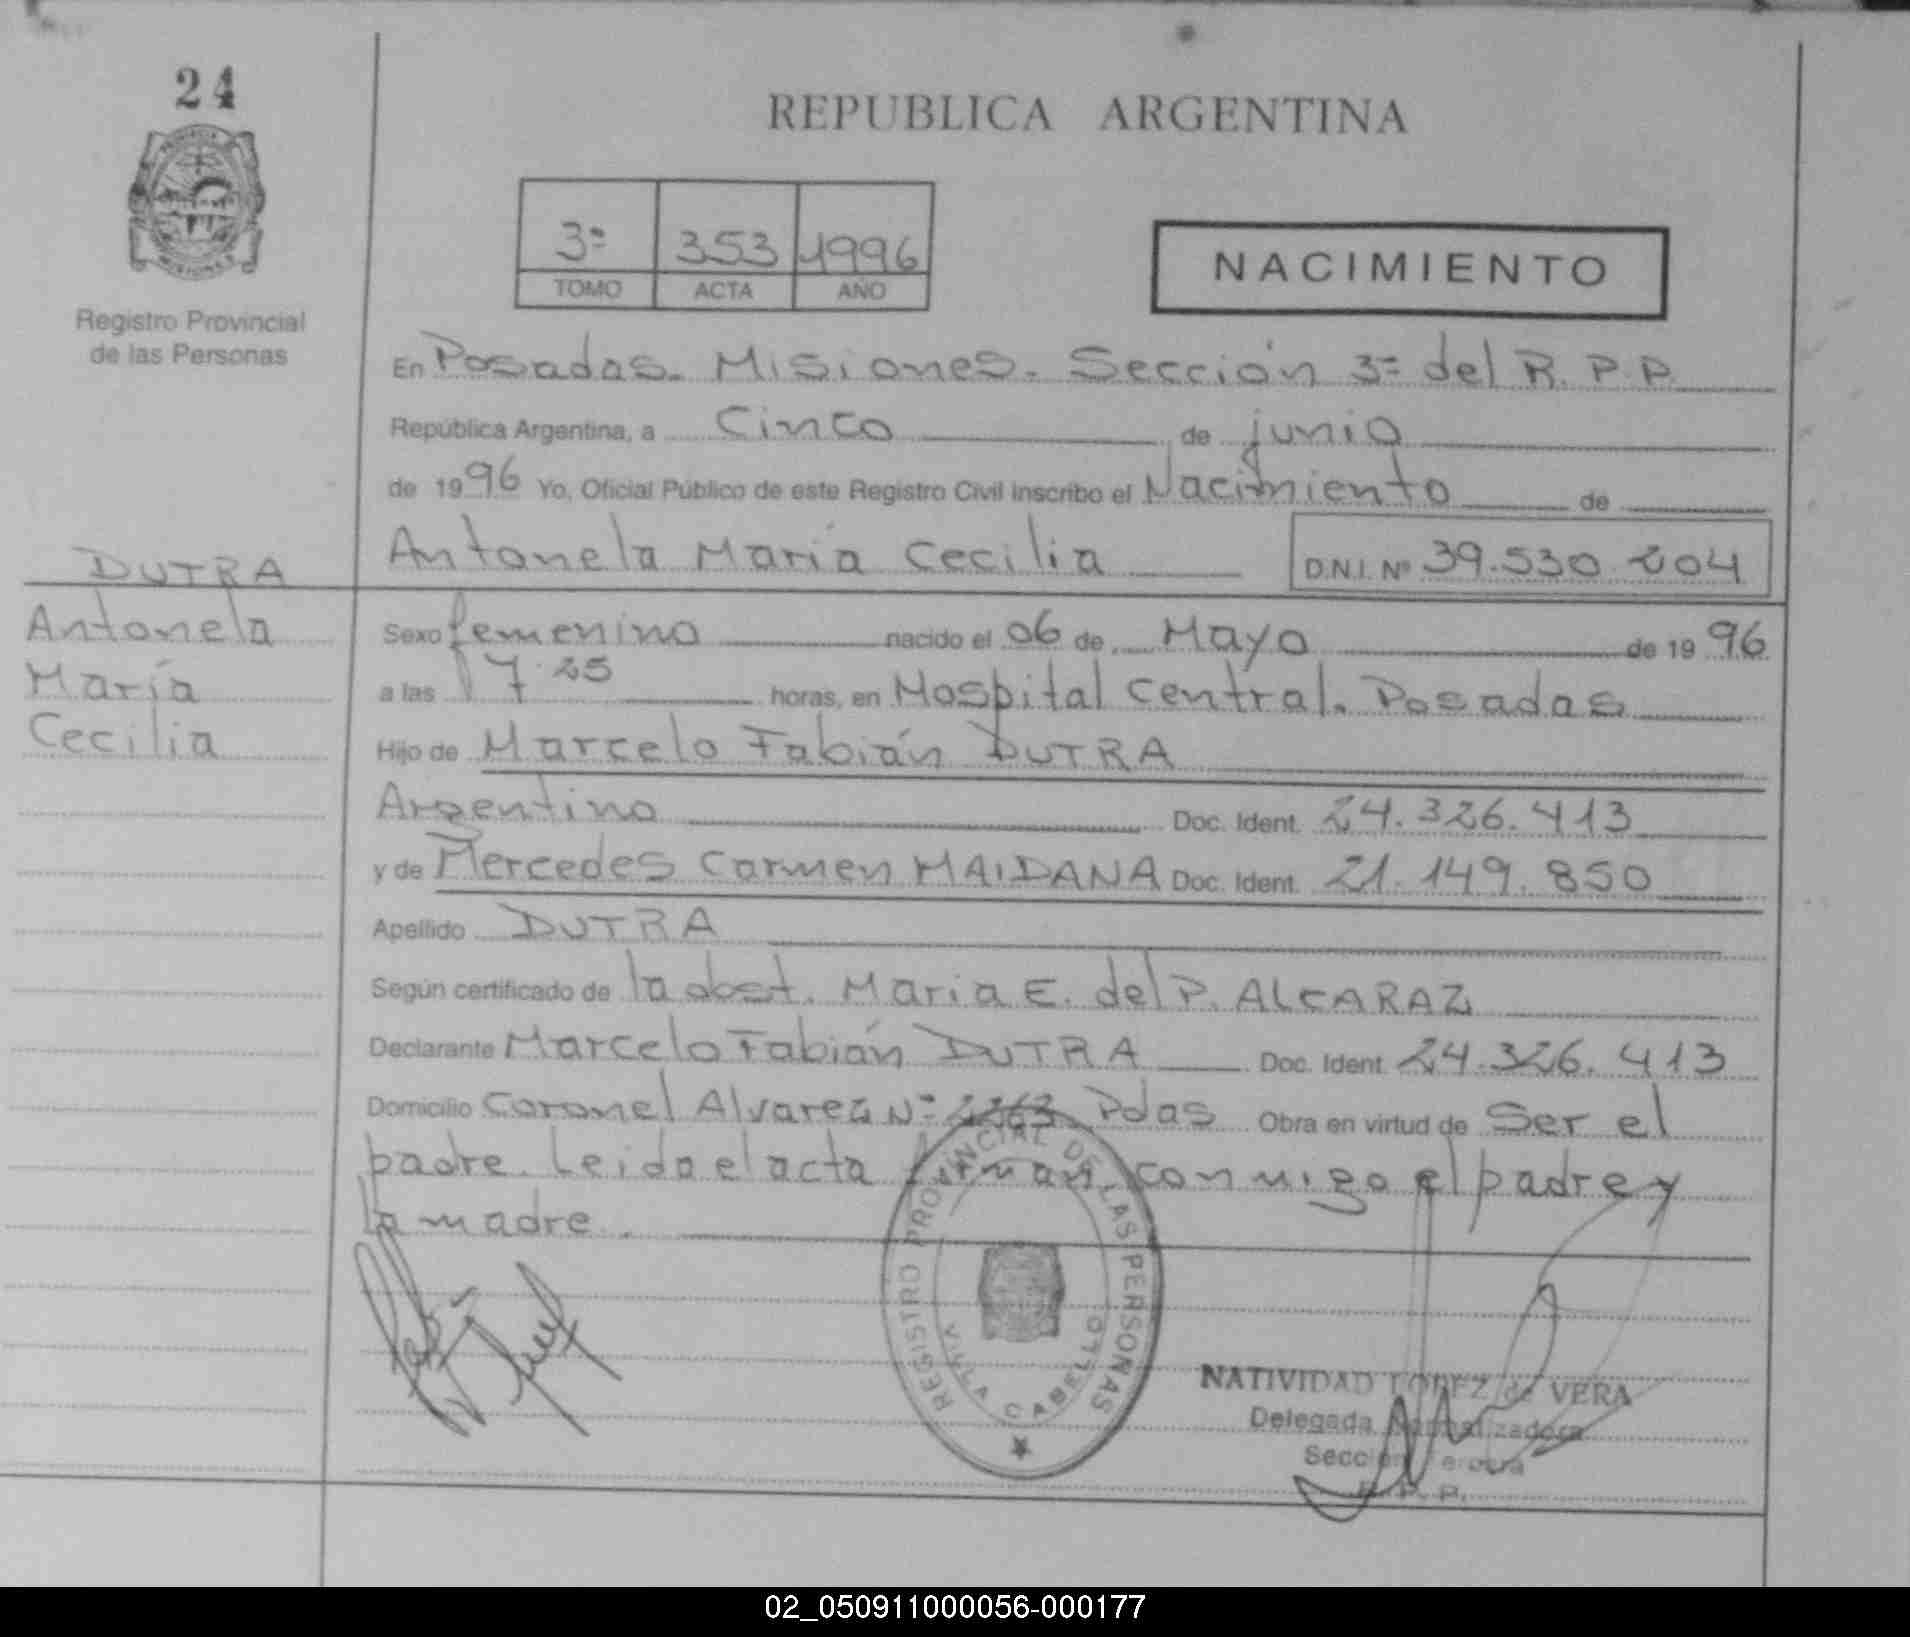 24
REPUBLICA ARGENTINA
3ª 353 1996
TOMO ACTA AÑO
NACIMIENTO
Registro Provincial
de las Personas
En Posadas. Misiones. Sección 3ª del R.P.P.
República Argentina, a Cinco de junio
de 1996 Yo, Oficial Público de este Registro Civil inscribo el Nacimiento de
Antonela María Cecilia D.N.I. Nº 39.530.204
DUTRA
Antonela
María
Cecilia
Sexo femenino nacido el 06 de Mayo de 1996
a las 7.25 horas, en Hospital Central. Posadas
Hijo de Marcelo Fabián DUTRA
Argentino Doc. Ident. 24.326.413
y de Mercedes Carmen MAIDANA Doc. Ident. 21.149.850
Apellido DUTRA
Según certificado de la obst. Maria E. del P. ALCARAZ
Declarante Marcelo Fabián DUTRA Doc. Ident. 24.326.413
Domicilio Coronel Alvarez Nº Pdas Obra en virtud de Ser el
padre. Leida el acta firman conmigo el padre y
la madre.
REGISTRO PROVINCIAL DE LAS PERSONAS
VILLA CABELLO
NATIVIDAD LOPEZ de VERA
Delegada Normalizadora
Sección Tercera
R. P. P.
02_050911000056-000177